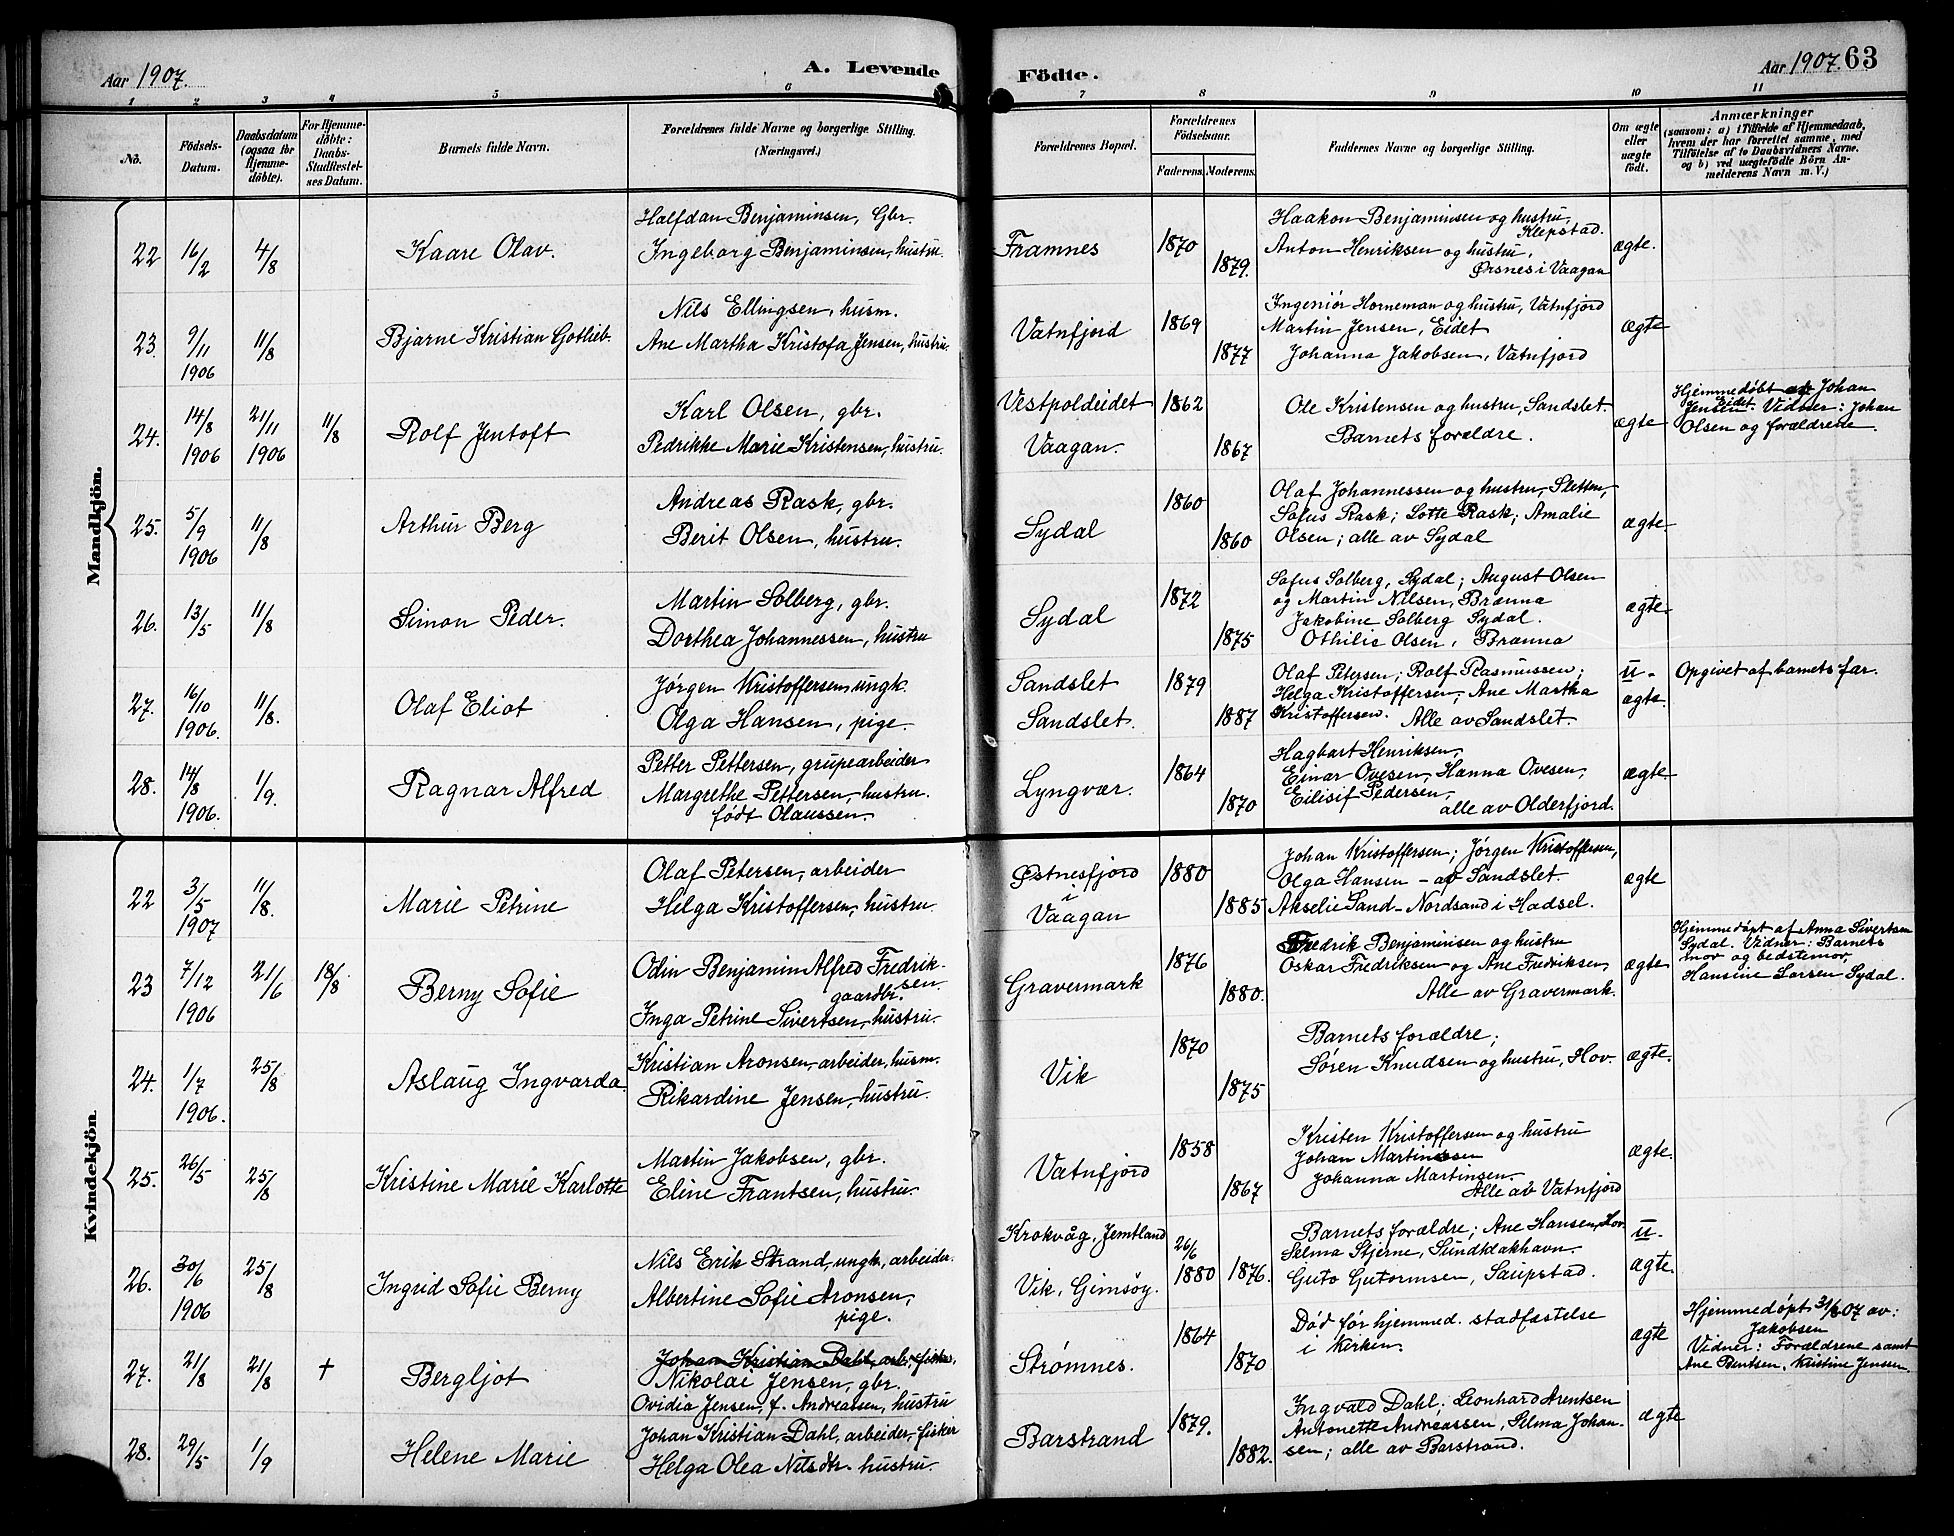 Aar 1907.
A. Levende Födte.
Aar 1907. 63
1 2 3 4 5 6 7 8 9 10 11
No.
Födsels-Datum.
Daabsdatum (ogsaa for Hjemme-döbte).
For Hjemme-döbte: Daabs-Stadfæstel-ses Datum.
Barnets fulde Navn.
Forældrenes fulde Navne og borgerlige Stilling.
(Næringsvei.)
Forældrenes Bopæl.
Forældrenes Födselsaar.
Faderens. Moderens.
Faddernes Navne og borgerlige Stilling.
Om ægte eller uægte födt.
Anmærkninger
(saasom: a) i Tilfælde af Hjemmedaab, hvem der har forrettet samme, med Tilföielse af to Daabsvidners Navne, og b) ved uægtefödte Börn An-melderens Navn m. V.)
Mandkjön.
22 16/2 4/8 Kaare Olav.
Halfdan Benjaminsen, Gbr.
Ingeborg Benjaminsen, hustru.
Framnes 1870 1879.
Haakon Benjaminsen og hustru, Klepstad.
Anton Henriksen og hustru,
Ørsnes i Vaagan
ægte.
23. 9/11 1906 11/8 Bjarne Kristian Gotlieb.
Nils Ellingsen, husm.
Ane Martha Kristofa Jensen, hustru.
Vatnfjord 1869 1877
Ingeniør Horneman og hustru, Vatnfjord
Martin Jensen, Eidet
Johanna Jakobsen, Vatnfjord
ægte
24. 14/8 1906 21/11 1906 11/8 Rolf Jentoft
Karl Olsen, gbr.
Pedrikke Marie Kristensen, hustru.
Vestpoldeidet
Vaagan. 1862 1867
Ole Kristensen og hustru, Sandslet.
Barnets forældre.
ægte
Hjemmedøbt av Johan
Jensen Eidet. Vidner: Johan
Olsen og forældrene.
25. 5/9 1906 11/8 Arthur Berg
Andreas Rask, gbr.
Berit Olsen, hustru.
Sydal 1860 1860
Olaf Johannessen og hustru, Sletten,
Sofus Rask; Lotte Rask; Amalie
Olsen; alle av Sydal
ægte
26. 13/5 11/8 Simon Peder.
Martin Solberg, gbr.
Dorthea Johannessen, hustru
Sydal 1872 1875
Sofus Solberg, Sydal; August Olsen
og Martin Nilsen, Brænna
Jakobine Solberg Sydal.
Othilie Olsen, Brænna
ægte
27. 16/10 1906. 11/8. Olaf Eliot
Jørgen Kristoffersen, ungk.
Olga Hansen, pige.
Sandslet
Sandslet. 1879 1887
Olaf Petersen; Rolf Rasmussen;
Helga Kristoffersen, Ane Martha
Kristoffersen. Alle av Sandslet.
u-
ægte.
Opgivet af barnets far.
28. 14/8 1906. 1/9. Ragnar Alfred
Petter Pettersen, grupearbeider
Margrethe Pettersen, hustru.
født Olaussen.
Lyngvær. 1864 1870
Hagbart Henriksen,
Einar Ovesen, Hanna Ovesen,
Eilisif Pedersen,
alle av Olderfjord.
ægte
Kvindekjön.
22 3/5 1907 11/8. Marie Petrine
Olaf Petersen, arbeider
Helga Kristoffersen, hustru.
Østnesfjord
i
Vaagan 1880 1885
Johan Kristoffersen; Jørgen Kristoffersen,
Olga Hansen - av Sandslet.
Akselie Sand - Nordsand i Hadsel.
ægte
23 7/12 1906 21/6 18/8 Berny Sofie
Odin Benjamin Alfred Fredrik-
sen.
gaardbr.
Inga Petrine Sivertsen, hustru.
Gravermark 1876 1880.
Fredrik Benjaminsen og hustru
Oskar Fredriksen og Ane Fredriksen,
Alle av Gravermark.
ægte
Hjemmedøpt af Anna Sivertsen
Sydal. Vidner: Barnets
mor og bedstemor,
Hansine Larsen Sydal.
24. 1/7 1906. 25/8 Aslaug Ingvarda
Kristian Aronsen, arbeider, husm.
Rikardine Jensen, hustru.
Vik 1870 1875
Barnets forældre;
Søren Knudsen og hustru, Hov.
ægte.
25. 26/5 25/8 Kristine Marie Karlotte
Martin Jakobsen, gbr.
Eline Frantsen, hustru.
Vatnfjord 1858 1867
Kristen Kristoffersen og hustru
Johan Martinussen
Johanna Martinsen
Alle av Vatnfjord
ægte.
26. 30/6 1906 25/8 Ingrid Sofie Berny
Nils Erik Strand, ungk, arbeider.
Albertine Sofie Aronsen,
pige.
Krokvåg, Jemtland
Vik, Gimsöy. 26/6 1880 1876.
Barnets forældre; Ane Hansen, Hov
Selma Stjerne, Sundklakhavn.
Guto Gutormsen, Saupstad.
u-
ægte.
27. 21/8 21/8 † Bergljot
Johan Kristian Dahl, arb, fisker,
Nikolai Jensen, gbr.
Ovidia Jensen, f. Andreassen, hustru
Strømnes. 1864 1870
Død før hjemmed. stadfæstelse
i Kirken.
ægte
Hjemmedøpt 31/8 07 av:
Jakobsen
Vidner: Forældrene samt
Ane Bentsen, Kristine Jensen
28. 29/5 1/9 Helene Marie
Johan Kristian Dahl, arbeider, fisker
Helga Olea Nilsdtr. hustru.
Barstrand 1879. 1882.
Ingvald Dahl; Leonhard Arentsen
Antonette Andreassen, Selma Johan-
sen; alle av Barstrand.
ægte